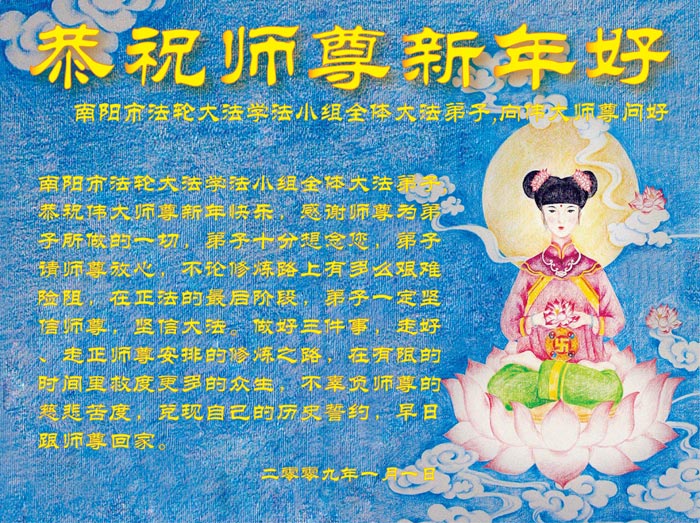 恭祝师尊新年好
南阳市法轮大法学法小组全体大法弟子,向伟大师尊问好
南阳市法轮大法学法小组全体大法弟子
恭祝伟大师尊新年快乐，感谢师尊为弟
子所做的一切，弟子十分想念您，弟子
请师尊放心，不论修炼路上有多么艰难
险阻，在正法的最后阶段，弟子一定坚
信师尊，坚信大法。做好三件事，走好
、走正师尊安排的修炼之路，在有限的
时间里救度更多的众生，不辜负师尊的
慈悲苦度，兑现自己的历史誓约，早日
跟师尊回家。
二零零九年一月一日